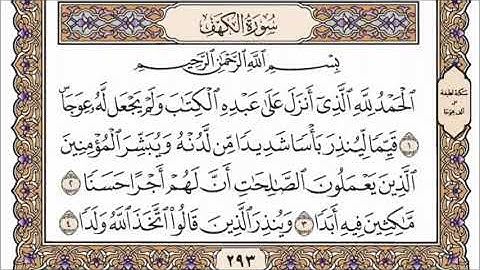 سُورَةُ الكَهْفِ
بِسْمِ اللَّهِ الرَّحْمَٰنِ الرَّحِيمِ
الْحَمْدُ لِلَّهِ الَّذِي أَنزَلَ عَلَىٰ عَبْدِهِ الْكِتَٰبَ وَلَمْ يَجْعَل لَّهُ عِوَجَاۜ
١ قَيِّمًا لِّيُنذِرَ بَأْسًا شَدِيدًا مِّن لَّدُنْهُ وَيُبَشِّرَ الْمُؤْمِنِينَ
الَّذِينَ يَعْمَلُونَ الصَّٰلِحَٰتِ أَنَّ لَهُمْ أَجْرًا حَسَنًا ٢
مَّٰكِثِينَ فِيهِ أَبَدًا ٣ وَيُنذِرَ الَّذِينَ قَالُوا اتَّخَذَ اللَّهُ وَلَدًا ٤
سكتة لطيفة
على
ألف عوجا
٢٩٣